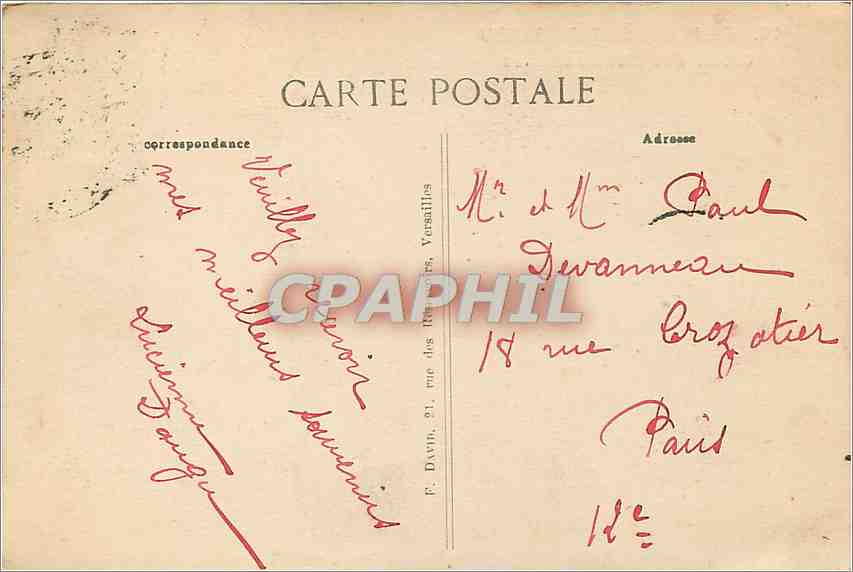 CARTE POSTALE
correspondance
Adresse
Veuillez recevoir
mes meilleurs souvenirs
Lucienne
F. DAVIN, 21, rue des Réservoirs, Versailles
Mr. et Mme Paul
Devanneau
18 rue Crozatier
Paris
12e
CPAPHIL